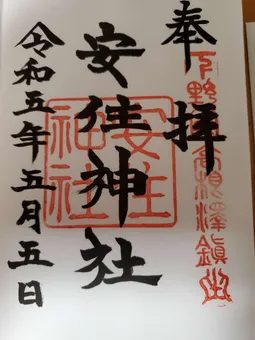 奉拝
下野國高根澤鎮座
安住神社
安住
神社
令和五年五月五日